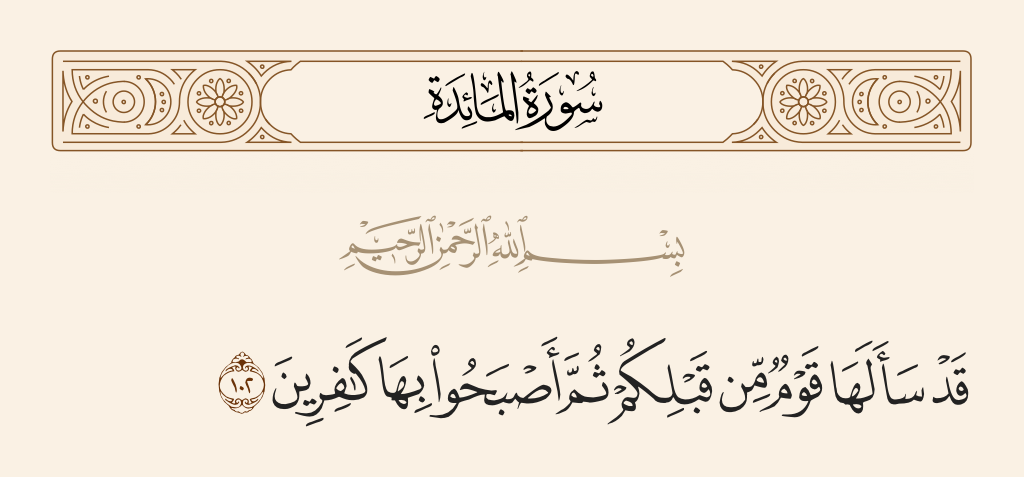 سُورَةُ المَائِدَةِ
بِسْمِ ٱللَّهِ ٱلرَّحْمَٰنِ ٱلرَّحِيمِ
قَدْ سَأَلَهَا قَوْمٌ مِّن قَبْلِكُمْ ثُمَّ أَصْبَحُوا۟ بِهَا كَٰفِرِينَ ١٠٢